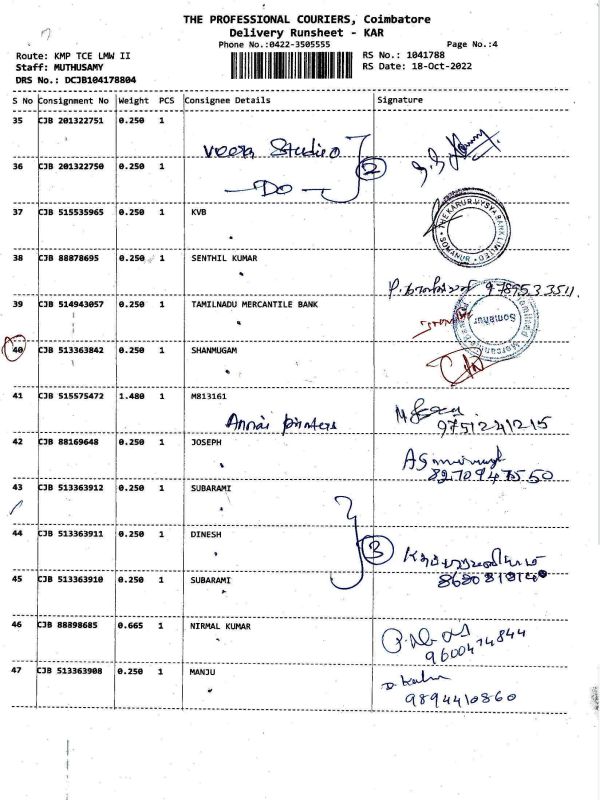 THE PROFESSIONAL COURIERS, Coimbatore
Delivery Runsheet - KAR
Phone No.:0422-3505555 Page No.:4
Route: KMP TCE LMW II RS No.: 1041788
Staff: MUTHUSAMY RS Date: 18-Oct-2022
DRS No.: DCJB104178804
S No Consignment No Weight PCS Consignee Details Signature
35 CJB 201322751 0.250 1
Veera Studio
36 CJB 201322750 0.250 1
2
DO
37 CJB 515535965 0.250 1 KVB
THE KARUR VYSYA BANK LIMITED
SOMANUR
38 CJB 88878695 0.250 1 SENTHIL KUMAR
9789533511
39 CJB 514943057 0.250 1 TAMILNADU MERCANTILE BANK
Somanur
40 CJB 513363842 0.250 1 SHANMUGAM
41 CJB 515575472 1.480 1 M813161
Annai printers
9751241215
42 CJB 88169648 0.250 1 JOSEPH
8270947550
43 CJB 513363912 0.250 1 SUBARAMI
44 CJB 513363911 0.250 1 DINESH
3
45 CJB 513363910 0.250 1 SUBARAMI
46 CJB 88898685 0.665 1 NIRMAL KUMAR
9600474844
47 CJB 513363908 0.250 1 MANJU
9894410860